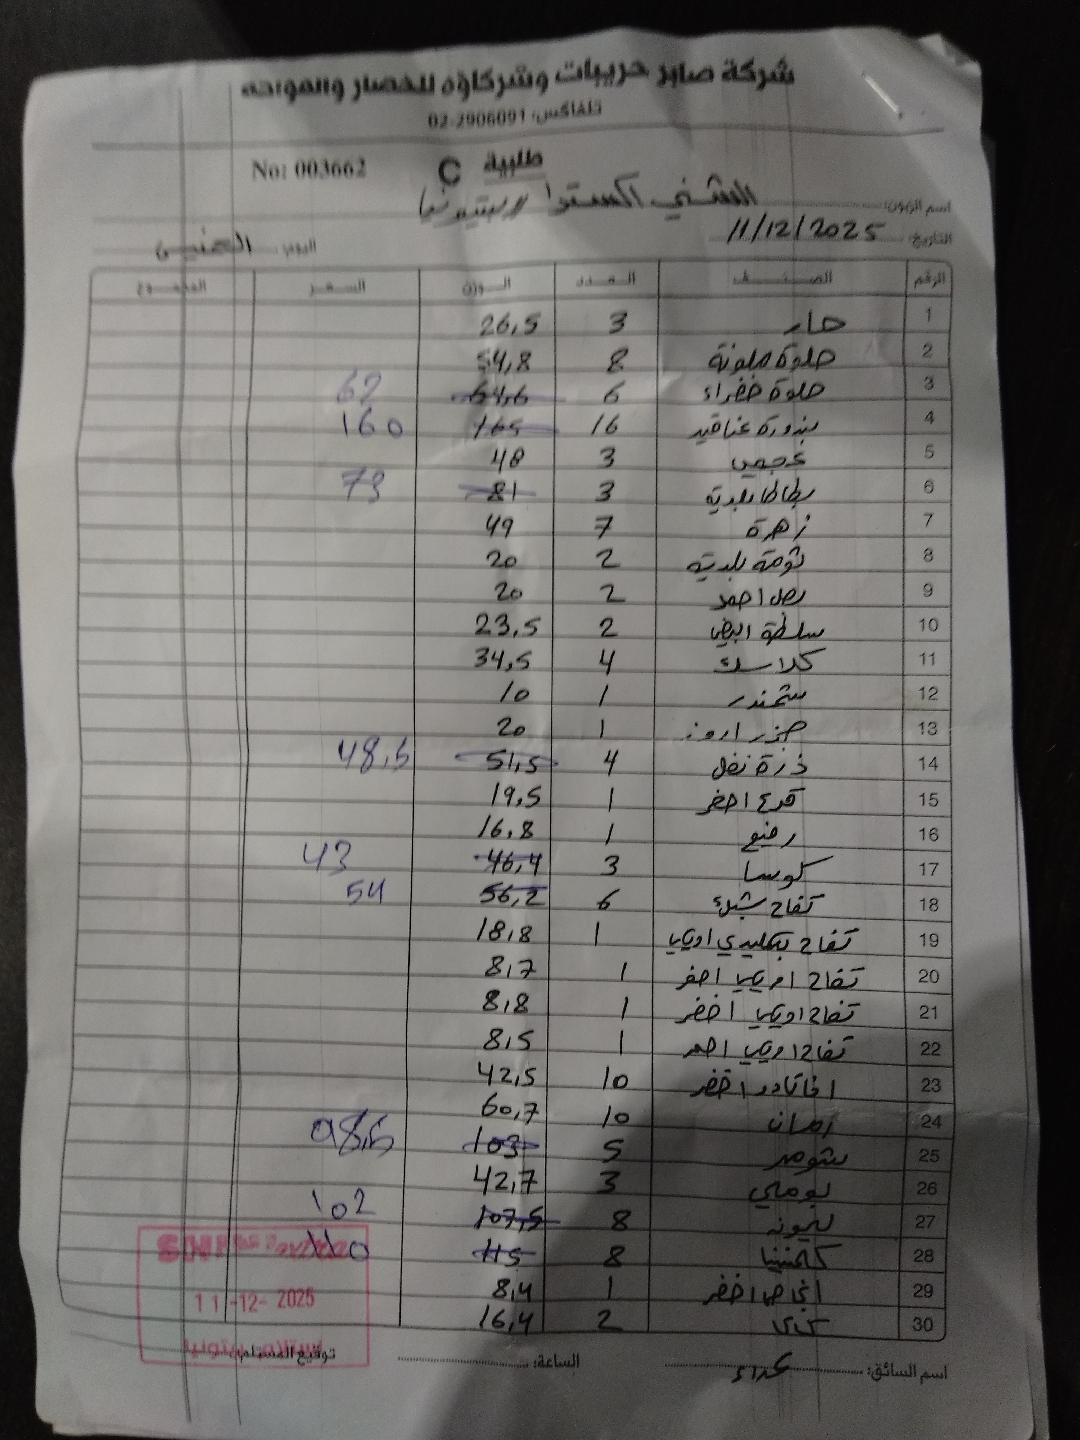 شركة صابر حريبات وشركاؤه للخضار والفواكه
تلفاكس: 02-2906091
طلبية C No: 003662
اسم الزبون: الشني اكسترا
التاريخ: 11/12/2025 اليوم:
الرقم الصنف العدد الوزن السعر المجموع
1 حار 3 26,5
2 حلوة ملونة 8 54,8
3 حلوة خضراء 6 64,6 62
4 بندورة عناقيد 16 165 160
5 عجمي 3 48
6 بطاطا بلدية 3 81 79
7 زهرة 7 49
8 ثومة بلدية 2 20
9 بصل احمر 2 20
10 سلطة ابيض 2 23,5
11 كلاسك 4 34,5
12 شمندر 1 10
13 جزر 1 20
14 ذرة نخل 4 51,5 48,5
15 قرع اخضر 1 19,5
16 رفيع 1 16,8
17 كوسا 3 46,4 43
18 تفاح 6 56,2 54
19 تفاح 1 18,8
20 تفاح اصفر 1 8,7
21 تفاح اخضر 1 8,8
22 تفاح احمر 1 8,5
23 اخضر 10 42,5
24 رمان 10 60,7
25 شومر 5 103 98,5
26 بوملي 3 42,7
27 ليمون 8 107,5 102
28 كلمنتينا 8 115 110
29 اخضر 1 8,4
30 2 16,4
11-12-2025
اسم السائق: الساعة: توقيع المستلم: